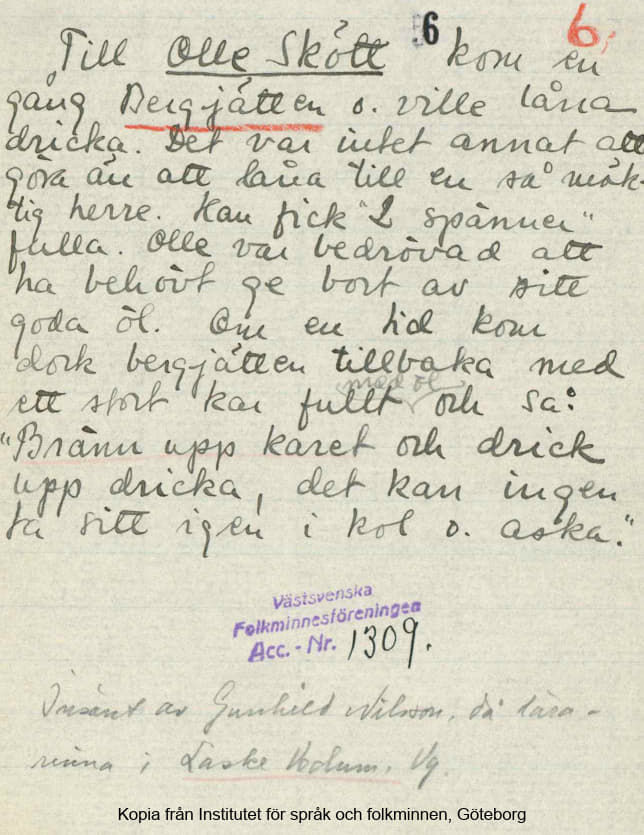 6 6.
Till Olle Skött kom en
gång Bergjätten o. ville låna
dricka. Det var intet annat att
göra än att låna till en så mäk-
tig herre. Han fick "2 spänner"
fulla. Olle var bedrövad att
ha behövt ge bort av sitt
goda öl. Om en tid kom
dock bergjätten tillbaka med
ett stort kar fullt med öl och sa:
"Bränn upp karet och drick
upp dricka, det kan ingen
ta sitt igen i kol o. aska."
Västsvenska
Folkminnesföreningen
Acc.-Nr. 1309.
Insänt av Gunhild Nilsson, då lära-
rinna i Laske Vedum, Vg.
Kopia från Institutet för språk och folkminnen, Göteborg